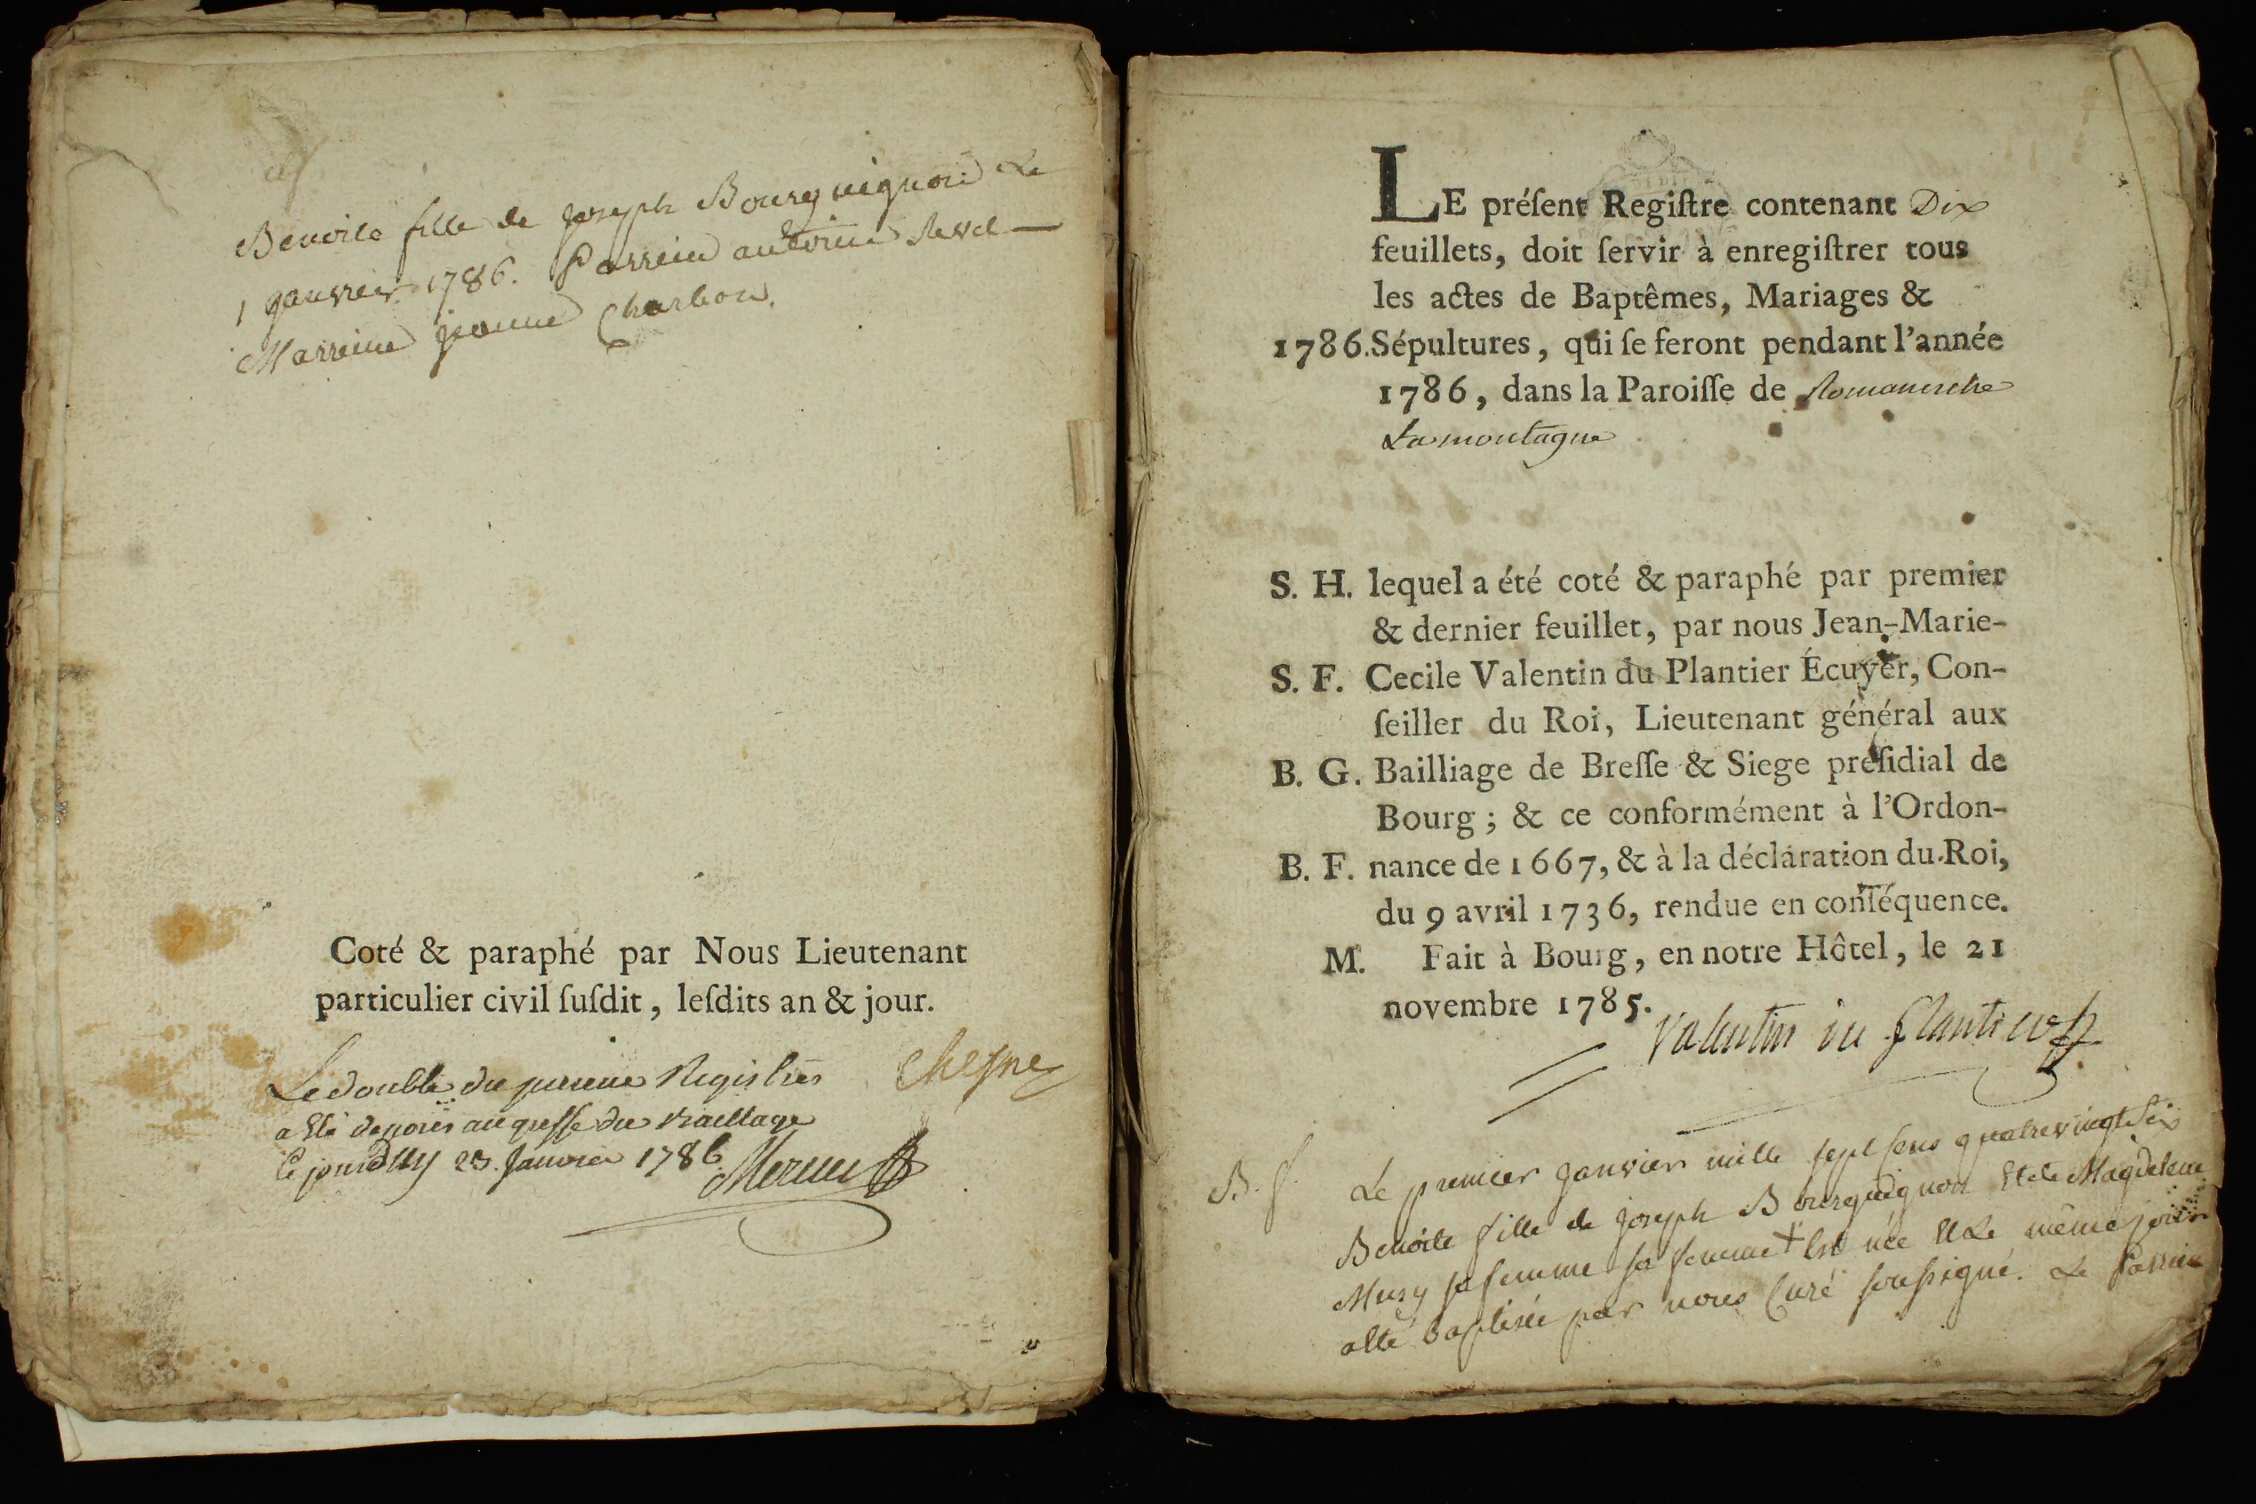 Benoite fille de joseph Bourguignon Le
1 janvier 1786. Parrein antoine Revel
Marreine jeanne Charbon.
Coté & paraphé par Nous Lieutenant
particulier civil ſuſdit, leſdits an & jour.
Chesne
Le double du Registres
a Eté au greffe du Bailliage
23. Janvier 1786.
LE préſent Regiſtre contenant Dix
feuillets, doit ſervir à enregiſtrer tous
les actes de Baptêmes, Mariages &
1786. Sépultures, qui ſe feront pendant l'année
1786, dans la Paroiſſe de Romaneche
La montagne
S. H. lequel a été coté & paraphé par premier
& dernier feuillet, par nous Jean-Marie-
S. F. Cecile Valentin du Plantier Écuyer, Con-
ſeiller du Roi, Lieutenant général aux
B. G. Bailliage de Breſſe & Siege préſidial de
Bourg ; & ce conformément à l'Ordon-
B. F. nance de 1667, & à la déclaration du Roi,
du 9 avril 1736, rendue en conſéquence.
M. Fait à Bourg, en notre Hôtel, le 21
novembre 1785.
Valentin du Plantier
B. f. Le premier janvier mille sept sens quatrevingt Six
Benoite fille de joseph Bourguignon Et de Magdeleine
Musy sa femme sa femme + Est née Et Le même jour
a Eté Baptisée par nous Curé soussigné. Le Parrein